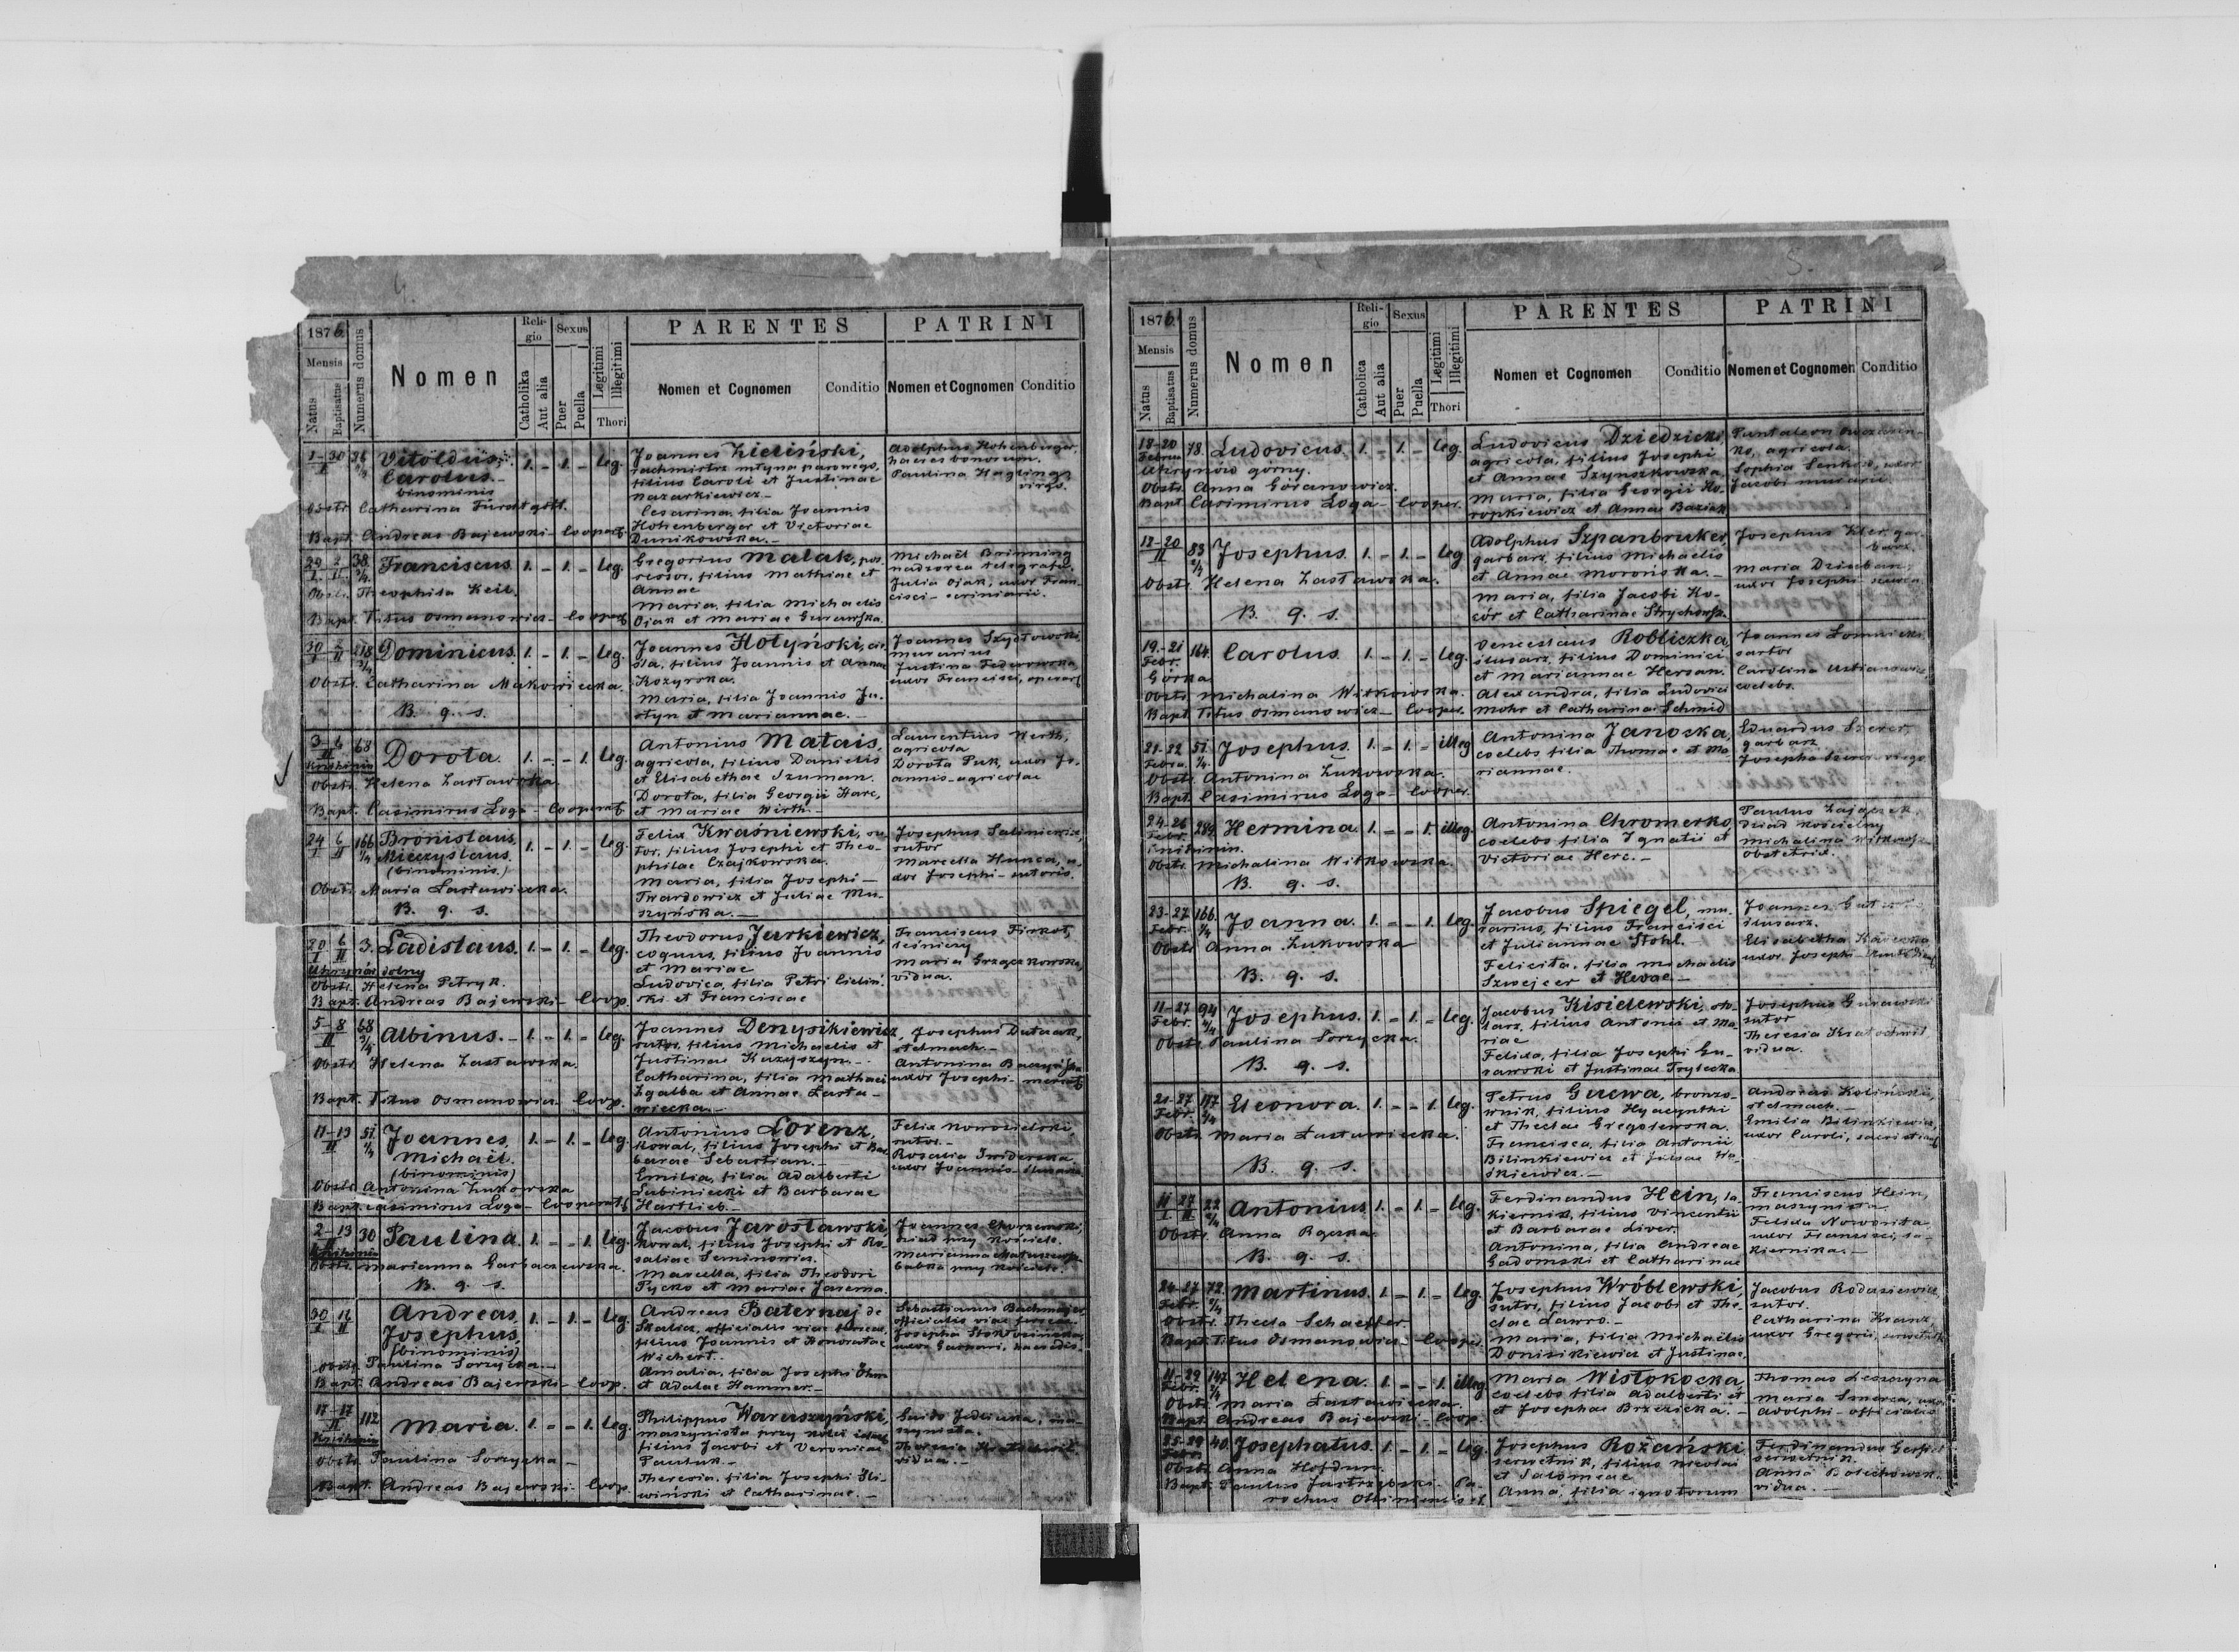 4.
1876
Mensis
Natus
Baptisatus
Numerus domus
Nomen
Religio
Catholika
Aut alia
Sexus
Puer
Puella
Legitimi
Illegitimi
Thori
PARENTES
Nomen et Cognomen
Conditio
PATRINI
Nomen et Cognomen
Conditio
1-30
I
Vitoldus
Carolus
binominis
1. - 1. - Leg.
Obstr. Catharina Fürstgott.
Bapt. Andreas Bajewski - Cooperat.
Joannes Zieliński,
rachmistrz młyna parowego,
filius Caroli et Justinae
Nazarkiewicz.-
Cesarina, filia Joannis
Hohenberger et Victoriae
Dunikowska.-
Adolphus Hohenberger,
haeres bonorum.
Paulina Hayling
virgo.
29 2
I. II.
38
Franciscus. 1. - 1. - Leg.
Obstr. Theophila Keil.
Bapt. Titus Osmanowicz - Cooperat.
Gregorius Malak, possessor, filius Mathiae et
Annae
Maria, filia Michaelis
Ojak et Mariae Gurawska.
Michaël Brinning
nadzorca telegrafu.
Julia Ojak, uxor Francisci - scriniarii.
30 2
I II
218
Dominicus. 1. - 1. - Leg.
Obstr. Catharina Makowiecka.
B. q. s.
Joannes Hołyński,
filius Joannis et Annae
Kozyrska.
Maria, filia Joannis Justyn et Mariannae.-
Joannes Szydłowski
murarius
Justina Fedorowska
uxor Francisci, operarii
3-6
II
68
Knihinin
Dorota. 1. - - 1. Leg.
Obstr. Helena Zasławska.
Bapt. Casimirus Loga - Cooperat.
Antonius Matais,
agricola, filius Danielis
et Elisabethae Szuman.
Dorota, filia Georgii Harc,
et Mariae Wirth.-
Laurentius Werth,
agricola
Dorota Puk, uxor Joannis - agricolae
24 6
I II
166
Bronislaus,
Mieczyslaus.
(binominis.)
1. - 1. - Leg.
Obstr. Maria Łastawiecka.
B. q. s.
Felix Kwaśniewski, sutor, filius Josephi et Theophilae Czajkowska.
Maria, filia Josephi -
Twardowicz et Juliae Muszyńska.-
Josephus Saliniewicz,
sutor
Marcella Hunca, uxor Josephi - sutoris.
20 6
I II
3.
Ladislaus. 1. - 1. - Leg.
Uhrynów dolny
Obstr. Helena Petryk.
Bapt. Andreas Bajewski - Coop.
Theodorus Jurkiewicz,
coquus, filius Joannis
et Mariae
Ludovica, filia Petri Cieliński et Franciscae
Franciscus Firkot,
leśniczy
Maria Grzączkowska,
vidua.
5-8
II
68
Albinus. - 1. - 1. - Leg.
Obstr. Helena Zasławska.
Bapt. Titus Osmanowicz - Coop.
Joannes Denysikiewicz,
sutor, filius Michaelis et
Justinae Kuzyszyn.-
Catharina, filia Mathaei
Zgalba et Annae Łastawiecka.-
Josephus Dutczak,
stelmach.-
Antonina
uxor Josephi -
11-13
II
51
Joannes,
Michaël.
(binominis)
1. - 1. - Leg.
Obstr. Antonina Żukowska
Bapt. Casimirus Loga - Cooperat.
Antonius Lorenz,
kowal, filius Josephi et Barbarae Sebastian.-
Emilia, filia Adalberti
Lubiniecki et Barbarae
Hartlieb.-
Felix Nowosielski,
sutor.-
Rosalia Swiderska
uxor Joannis
2-13
II
30
Knihinin
Paulina. 1. - - 1. Leg.
Obstr. Marianna Garbaczewska.
B. q. s.
Jacobus Jarosławski,
kowal, filius Josephi et Rosaliae Seminowicz.
Marcella, filia Theodori
Pycko et Mariae Jarema.
Joannes Chorzemski,
dziad przy kościele.
Marianna
babka przy kościele.
30 16
I II
Andreas,
Josephus,
(binominis)
1. - 1. - Leg.
Obstr. Paulina Sorzycka.-
Bapt. Andreas Bajewski - Coop.
Andreas Baternaj de
Skalica, officialis viae ferreae
filius Joannis et Honoratae
Wichert.
Amalia, filia Josephi Öhm
et Adalae Hammer.-
Sebastianus Bachmajer,
officialis viae ferreae.
Josepha
uxor Gaspari,
17-17
II
112
Knihinin
Maria. 1. - - 1. Leg.
Obstr. Paulina Sorzycka -
Bapt. Andreas Bajewski - Coop.
Philippus Waruszyński,
maszynista przy kolei
filius Jacobi et Veronicae
Pawluk.-
Theresia, filia Josephi Śliwiński et Catharinae.-
Guido Jedliczka, maszynista.
Theresia Kratochwil
vidua.-
5.
1876
Mensis
Natus
Baptisatus
Numerus domus
Nomen
Religio
Catholica
Aut alia
Sexus
Puer
Puella
Legitimi
Illegitimi
Thori
PARENTES
Nomen et Cognomen
Conditio
PATRINI
Nomen et Cognomen
Conditio
18-20
Febru
78.
Ludovicus. 1. - 1. - Leg.
Uhrynów górny.
Obstr. Anna Góranowicz.
Bapt. Casimirus Loga - Cooper.
Ludovicus Dziedzicki,
agricola, filius Josephi
et Annae Szynszkowska.
Maria, filia Georgii Koropkiewicz et Annae Baziak
Pantaleon
agricola.
Sophia Senkow, uxor
Jacobi murarii
12-20
II
83
Josephus. 1. - 1. - Leg
Obstr. Helena Zasławska.
B. q. s.
Adolphus Szpanbruker,
garbarz, filius Michaelis
et Annae Morońska.-
Maria, filia Jacobi Kocór et Catharinae
Josephus Kler, garbarz.
Maria Dziuban,
uxor Josephi
19-21
Febr.
164.
Górka
Carolus. 1. - 1. - Leg.
Obstr. Michalina Witkowska.
Bapt. Titus Osmanowicz - Cooper.
Venceslaus Robliczka,
ślusarz, filius Dominici
et Mariannae Hersan.
Alexandra, filia Ludovici
Mohr et Catharinae Schmid
Joannes Łomnicki
sartor
Carolina
coelebs.
21-22
Febru.
51.
Josephus. 1. - 1. - illeg
Obstr. Antonina Żukowska.
Bapt. Casimirus Loga - Cooper.
Antonina Janoska,
coelebs filia Thomae et Mariannae.
Eduardus Szerer,
garbarz
Josepha Szerer - virgo
24-26
Febr.
289.
Knihinin.
Hermina. 1. - - 1. illeg.
Obstr. Michalina Witkowska.
B. q. s.
Antonina Chromerko
coelebs filia Ignatii et
Victoriae Herc.-
Paulus Zajączek
dziad kościelny
Michalina Witkowska
obstetrix.
23-27
Febr.
166.
Joanna. 1. - - 1. Leg.
Obstr. Anna Żukowska
B. q. s.
Jacobus Spiegel, murarius, filius Francisci
et Juliannae Stohl.
Felicita, filia Michaelis
Szwejcer et Hevae.-
Joannes
ślusarz.
Elisabetha
uxor Josephi -
11-27
Febr.
94
Josephus. 1. - 1. - Leg.
Obstr. Paulina Sorzycka.
B. q. s.
Jacobus Kisielewski, stolarz, filius Antonii et Mariae
Felixa, filia Josephi Gurawski et Justinae Trylecka
Josephus Gurawski
sutor
Theresia Kratochwil
vidua.
21-27
Febr.
117
Eleonora. 1. - - 1. Leg.
Obstr. Maria Łastawiecka.
B. q. s.
Petrus Guewa, bronzownik, filius Hyacynthi
et Theclae Gregolewska.
Francisca, filia Antonii
Bilinkiewicz et Juliae
Andreas Koliński,
stelmach.-
Emilia Bilinkiewicz,
uxor Caroli,
11-27
I II
22
Antonius. 1. - 1. - Leg.
Obstr. Anna Rączka.
B. q. s.
Ferdinandus Hein, lakiernik, filius Vincentii
et Barbarae Liver.
Antonina, filia Andreae
Gadomski et Catharinae
Franciscus Hein,
maszynista.
Felixa Nowonta,
uxor Francisci, lakiernika.-
24-27
Febr.
72.
Martinus. 1. - 1. - Leg.
Obstr. Thecla Schaeffer.
Bapt. Titus Osmanowicz - Cooper.
Josephus Wróblewski,
sutor, filius Jacobi et Theclae Lawro.-
Maria, filia Michaelis
Donisikiewicz et Justinae.
Jacobus Rodasiewicz,
sutor.
Catharina Kranz,
uxor Gregorii,
11-29
Febr.
147.
Helena. 1. - - 1. illeg
Obstr. Maria Łastawiecka.
Bapt. Andreas Bajewski - Coop.
Maria Wisłokocka,
coelebs filia Adalberti et
et Josephae Brzezicka.-
Thomas Leszczyna
Maria Smerca, uxor
Adolphi - officialis
25-29
Febr.
40.
Josephatus. 1. - 1. - Leg.
Obstr. Anna Hofdun.
Bapt. Paulus Jastrzębski - Parochus Ottiniensis r. l.
Josephus Rożański
serwetnik, filius Nicolai
et Salomeae.
Anna, filia ignotorum
Ferdinandus
serwetnik.
Anna
vidua.-